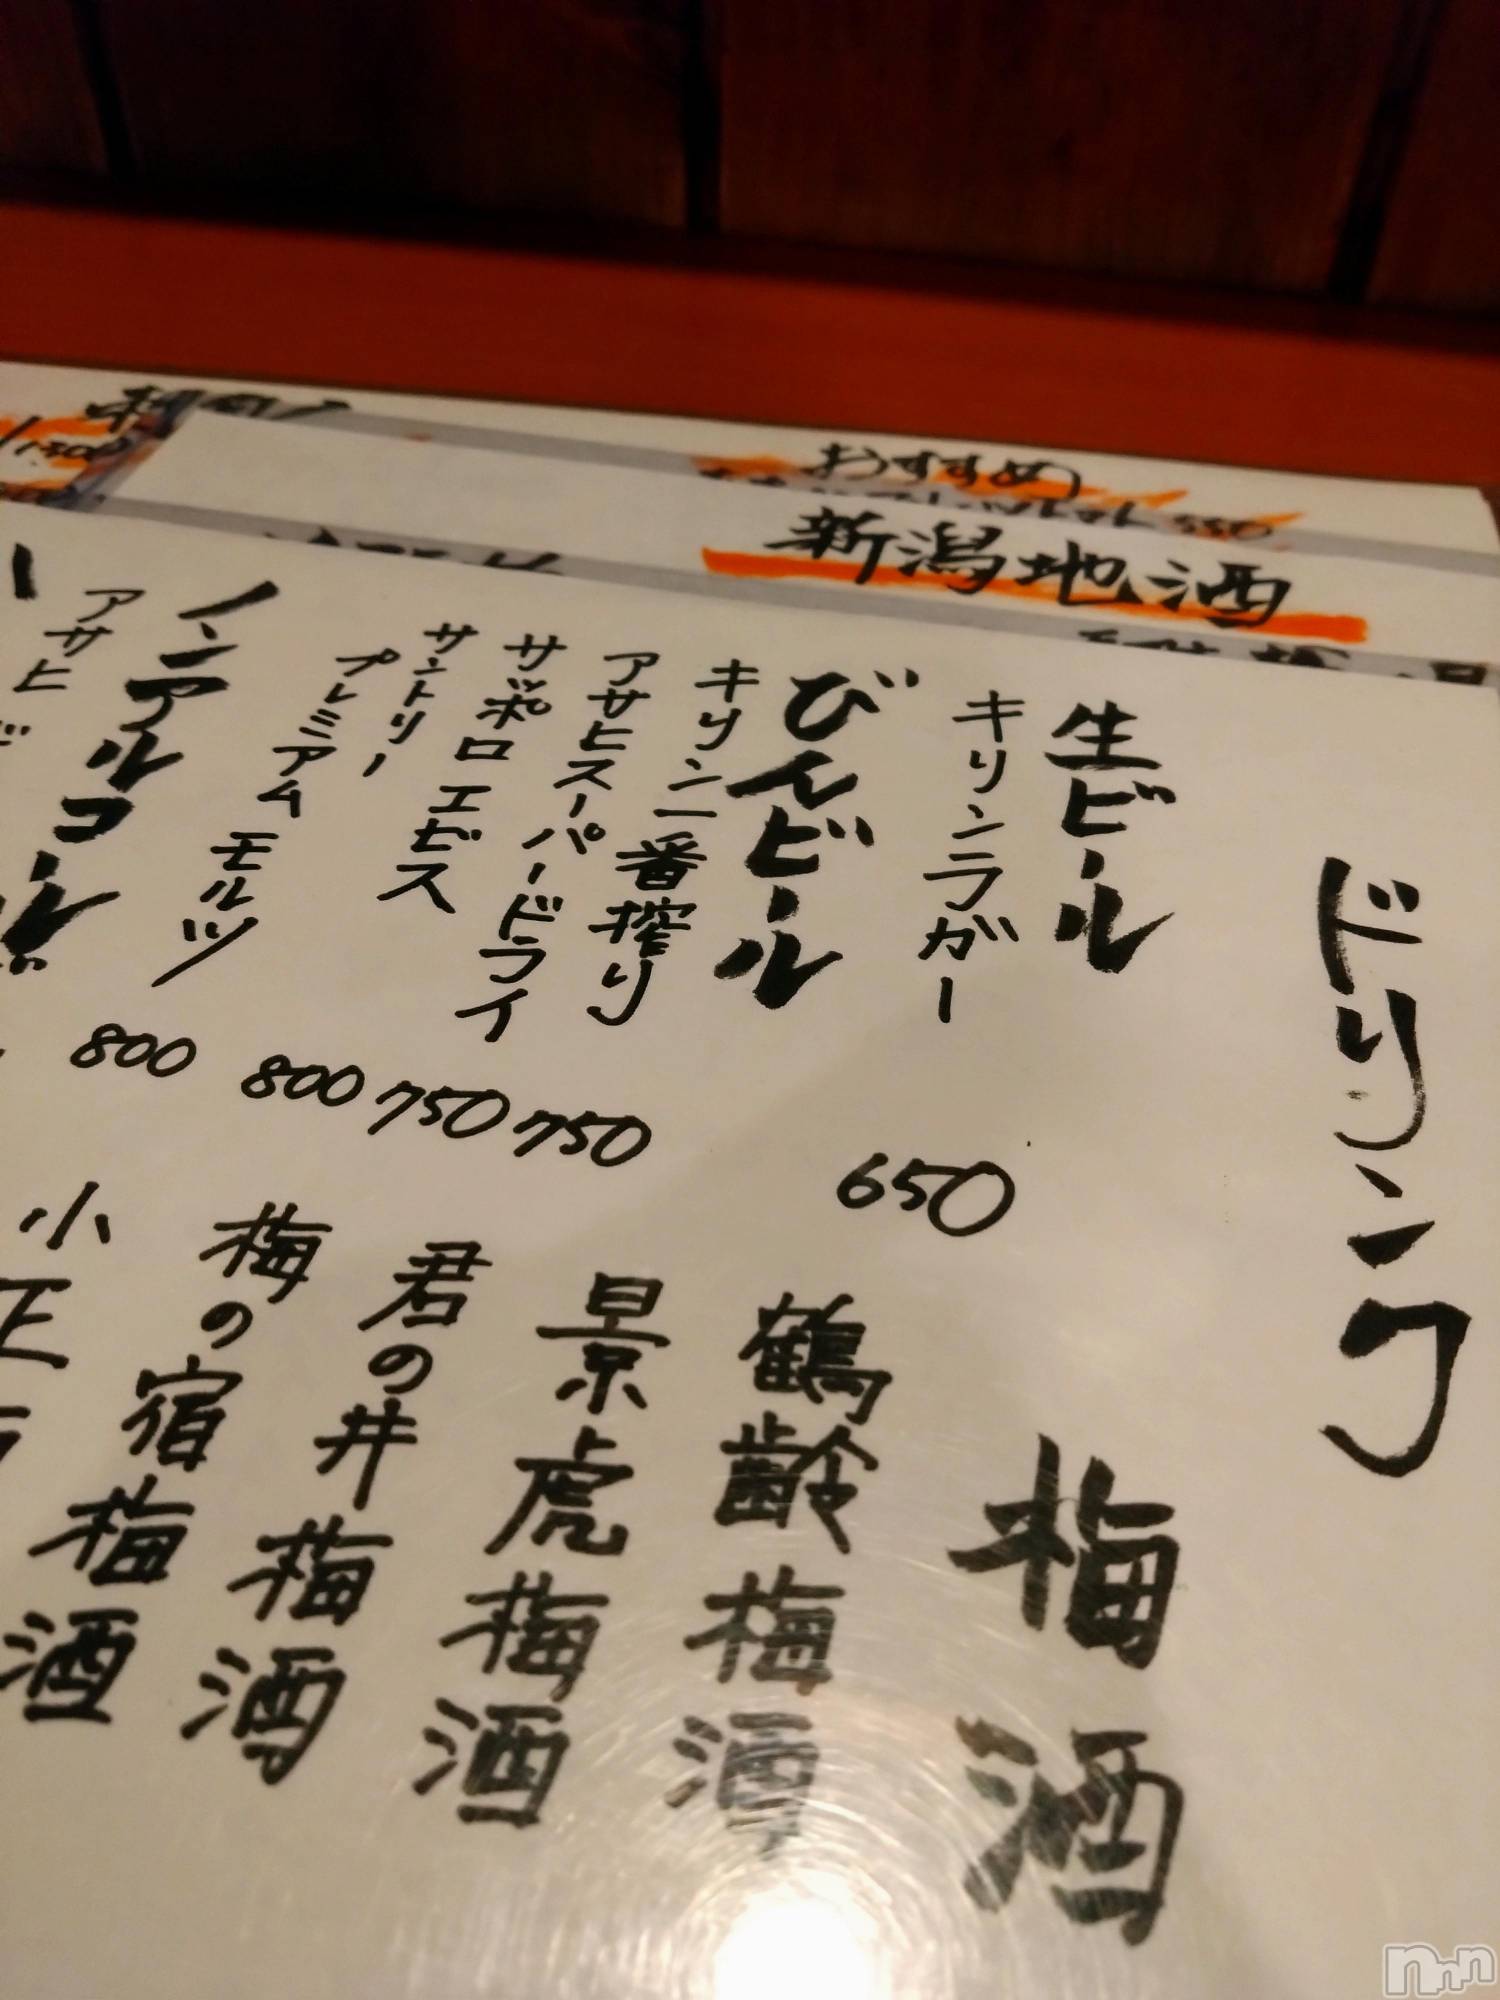 おすすめ
550
新潟地酒
ドリンク
生ビール
キリンラガー 650
びんビール
キリン一番搾り 750
アサヒスーパードライ 750
サッポロ エビス 800
サントリー
プレミアム モルツ 800
ノンアルコール
アサヒ
梅酒
鶴齢梅酒
景虎梅酒
君の井梅酒
梅の宿梅酒
小正
nnn